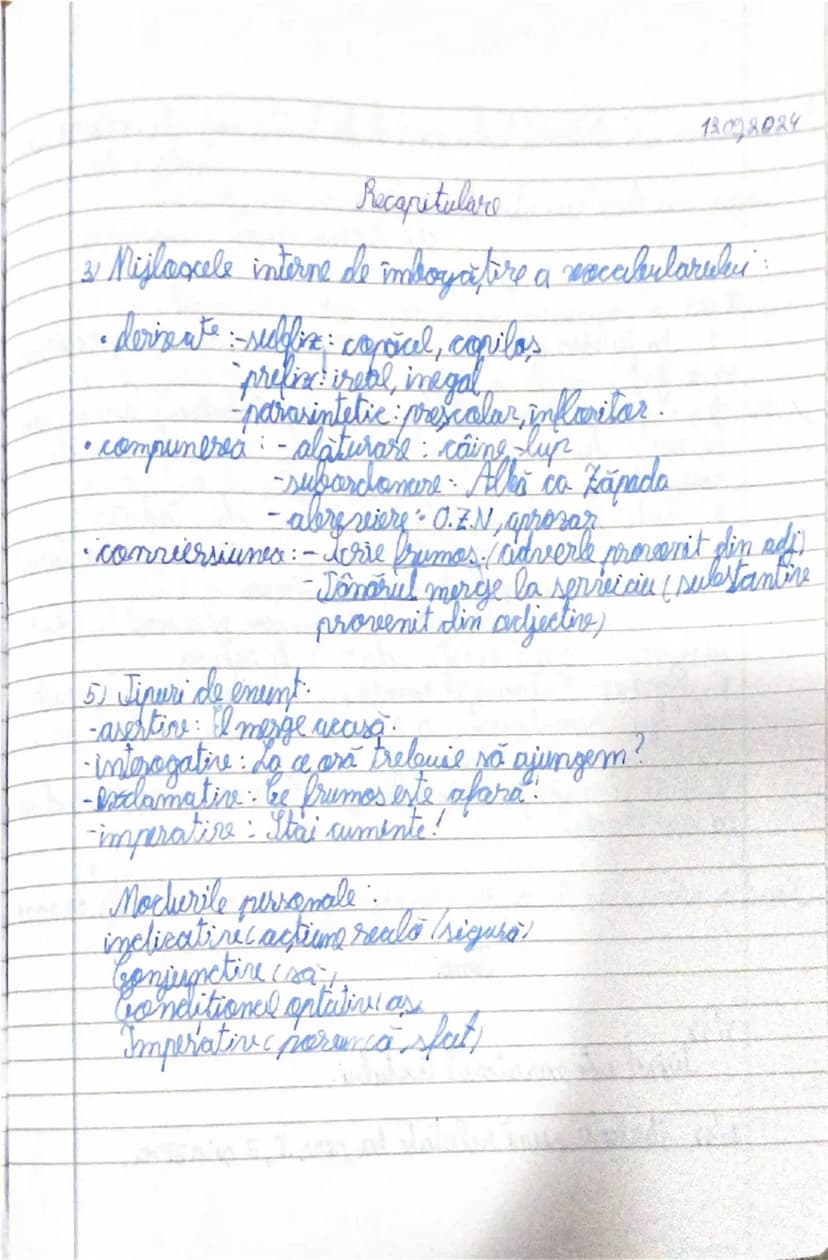 12.09.2024
Recapitulare
3) Mijloacele interne de îmbogățire a vocabularului:
• derivate: -sufix: copăcel, copilaș
-prefix: ireal, inegal
-parasintetic: preșcolar, înfloritor.
• compunerea: - alăturare: câine-lup
-subordonare: Albă ca Zăpada
- abreviere: O.Z.N, aprozar
• conversiunea: - Scrie frumos. (adverb provenit din adj)
- Tânărul merge la serviciu (substantiv
provenit din adjectiv)
5) Tipuri de enunț:
-asertiv: El merge acasă.
-interogativ: La ce oră trebuie să ajungem?
-exclamativ: Ce frumos este afară!
-imperativ: Stai cuminte!
Modurile personale:
indicativ (acțiune reală /sigură)
Conjunctiv (să)
Condiționel optativ (aș
Imperativ (poruncă, sfat)